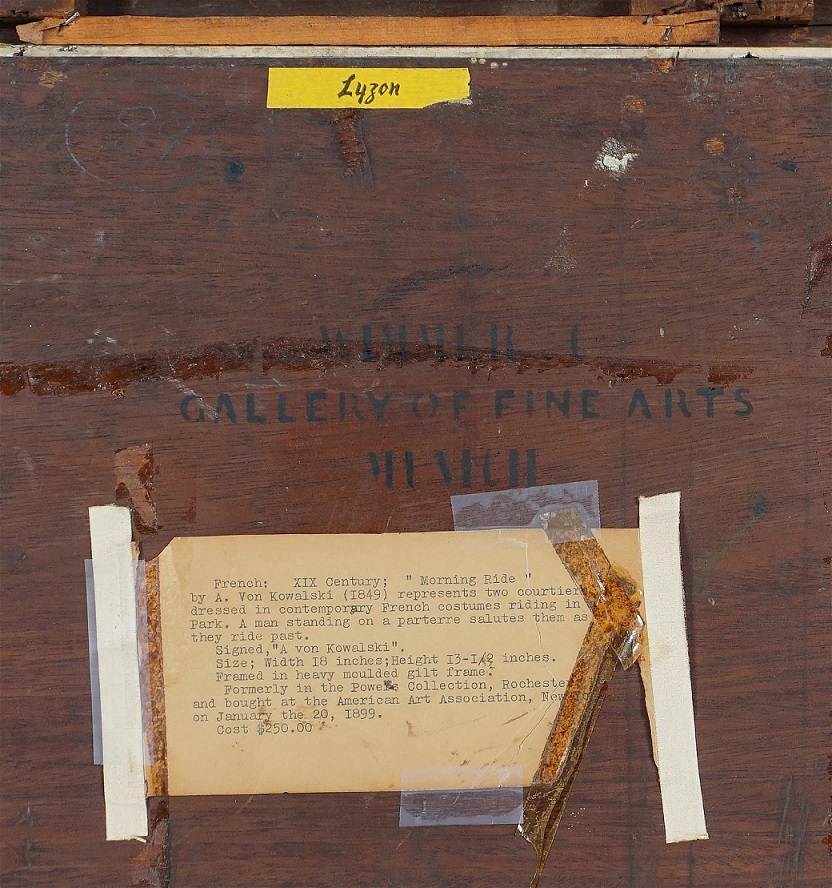 Lyzon
89
WIMMER & C
GALLERY OF FINE ARTS
MUNICH
French: XIX Century; " Morning Ride "
by A. Von Kowalski (I849) represents two courtier
dressed in contemporary French costumes riding in
Park. A man standing on a parterre salutes them as
they ride past.
Signed,"A von Kowalski".
Size; Width I8 inches;Height I3-I/2 inches.
Framed in heavy moulded gilt frame.
Formerly in the Powers Collection, Rochester
and bought at the American Art Association, New Yo
on January the 20, I899.
Cost $250.00